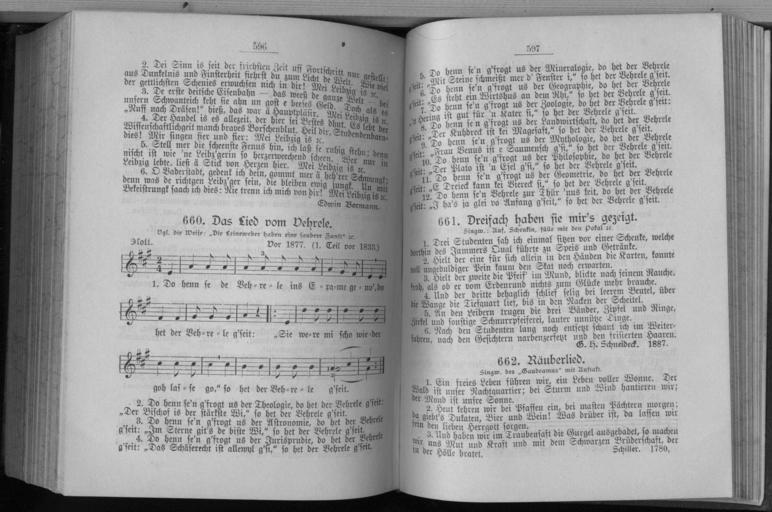 596
2. Dei Sinn is seit der frichsten Zeit uff Fortschritt nur gestellt;
aus Dunkelnis und Finsterheit fiehrst du zum Licht de Welt. Wie viel
der gettlichsten Schenies erwuchsen nich in dir! Mei Leibzig is ꝛc.
3. De erste deitsche Eisenbahn — das weeß de ganze Welt — bei
unsern Schwanteich keht sie ahn un gost e heeses Geld. Doch als es
„Nuff nach Dräsen!“ hieß, das war ä Hauptpläsir. Mei Leibzig is ꝛc.
4. Der Handel is es allezeit, der hier sei Bestes dhut. Es lebt der
Wissenschaftlichkeit manch braves Borschenblut. Heil dir, Studendenharmo-
dies! Mir singen hier und hier: Mei Leibzig is ꝛc.
5. Stell mer die scheenste Fenus hin, ich lass se ruhig stehn; denn
nischt ist wie 'ne Leibz'gerin so herzerwerchend scheen. Wer nur in
Leibzig lebte, ließ ä Stick von Herzen hier. Mei Leibzig is ꝛc.
6. O Vaderstadt, gedenk ich dein, gommt mer ä heh'rer Schwung;
denn was de richtgen Leibz'ger sein, die bleiben ewig jung. Un mit
Bekeistrungk saach ich dies: Nie trenn ich mich von dir! Mei Leibzig is ꝛc.
Edwin Bormann.
660. Das Lied vom Vehrele.
Vgl. die Weise: „Die Leineweber haben eine saubere Zunft“ ꝛc.
Flott. Vor 1877. (1. Teil vor 1833.)
1. Do henn se de Beh-re-le ins E-xa-me ge-no',do
het der Beh-re-le g'seit: „Sie we-re mi scho wie-der
goh las-se go,“ so het der Beh-re-le g'seit.
2. Do henn se'n g'frogt us der Theologie, do het der Behrele g'seit:
„Der Bischof is der stärkste Wi,“ so het der Behrele g'seit.
3. Do henn se'n g'frogt us der Astronomie, do het der Behrele
g'seit: „Im Sterne git's de biste Wi,“ so het der Behrele g'seit.
4. Do henn se'n g'frogt us der Jurisprudie, do het der Behrele
g'seit: „Das Schäferecht ist allewyl g'si,“ so het der Behrele g'seit.
597
5. Do henn se'n g'frogt us der Mineralogie, do het der Behrele
g'seit: „Mit Steine schmeißt mer d' Fenster i,“ so het der Behrele g'seit.
6. Do henn se'n g'frogt us der Geographie, do het der Behrele
g'seit: „Es steht ein Wirtshus an dem Rhi,“ so het der Behrele g'seit.
7. Do henn se'n g'frogt us der Zoologie, do het der Behrele g'seit:
„'n Hering ist gut für 'n Kater si,“ so het der Behrele g'seit.
8. Do henn se'n g'frogt us der Landwirtschaft, do het der Behrele
g'seit: „Der Kuhdreck ist kei Magesaft,“ so het der Behrele g'seit.
9. Do henn se'n g'frogt us der Mythologie, do het der Behrele
g'seit: „Frau Venus ist e Saumensch g'si,“ so het der Behrele g'seit.
10. Do henn se'n g'frogt us der Philosophie, do het der Behrele
g'seit: „Der Plato ist 'n Esel g'si,“ so het der Behrele g'seit.
11. Do henn se'n g'frogt us der Geometrie, do het der Behrele
g'seit: „E Dreieck kann kei Viereck si,“ so het der Behrele g'seit.
12. Do henn se'n Behrele zur Thür 'nus keit, do het der Behrele
g'seit: „I ha's ja glei vo Anfang g'seit,“ so het der Behrele g'seit.
661. Dreifach haben sie mir's gezeigt.
Singw.: Auf, Schenkin, fülle mir den Pokal ꝛc.
1. Drei Studenten sah ich einmal sitzen vor einer Schenke, welche
dorthin des Jammers Qual führte zu Speis und Getränke.
2. Hielt der eine für sich allein in den Händen die Karten, konnte
voll ungeduldiger Pein kaum den Skat noch erwarten.
3. Hielt der zweite die Pfeif' im Mund, blickte nach seinem Rauche,
froh, als ob er vom Erdenrund nichts zum Glücke mehr brauche.
4. Und der dritte behaglich schlief selig bei leerem Beutel, über
die Wange die Tiefquart lief, bis in den Nacken der Scheitel.
5. An den Leibern trugen die drei Bänder, Zipfel und Ringe,
Zirkel und sonstige Schnurrpfeiferei, lauter unnütze Dinge.
6. Nach den Studenten lang noch entsetzt schaut ich im Weiter-
fahren, nach den Gesichtern narbenzerfetzt und den frisierten Haaren.
G. H. Schneideck. 1887.
662. Räuberlied.
Singw. des „Gaudeamus“ mit Auftakt.
1. Ein freies Leben führen wir, ein Leben voller Wonne. Der
Wald ist unser Nachtquartier; bei Sturm und Wind hantieren wir;
der Mond ist unsre Sonne.
2. Heut kehren wir bei Pfaffen ein, bei masten Pächtern morgen;
da giebt's Dukaten, Bier und Wein! Was drüber ist, da lassen wir
fein den lieben Herrgott sorgen.
3. Und haben wir im Traubensaft die Gurgel ausgebadet, so machen
wir uns Mut und Kraft und mit dem Schwarzen Brüderschaft, der
in der Hölle bratet. Schiller. 1780.